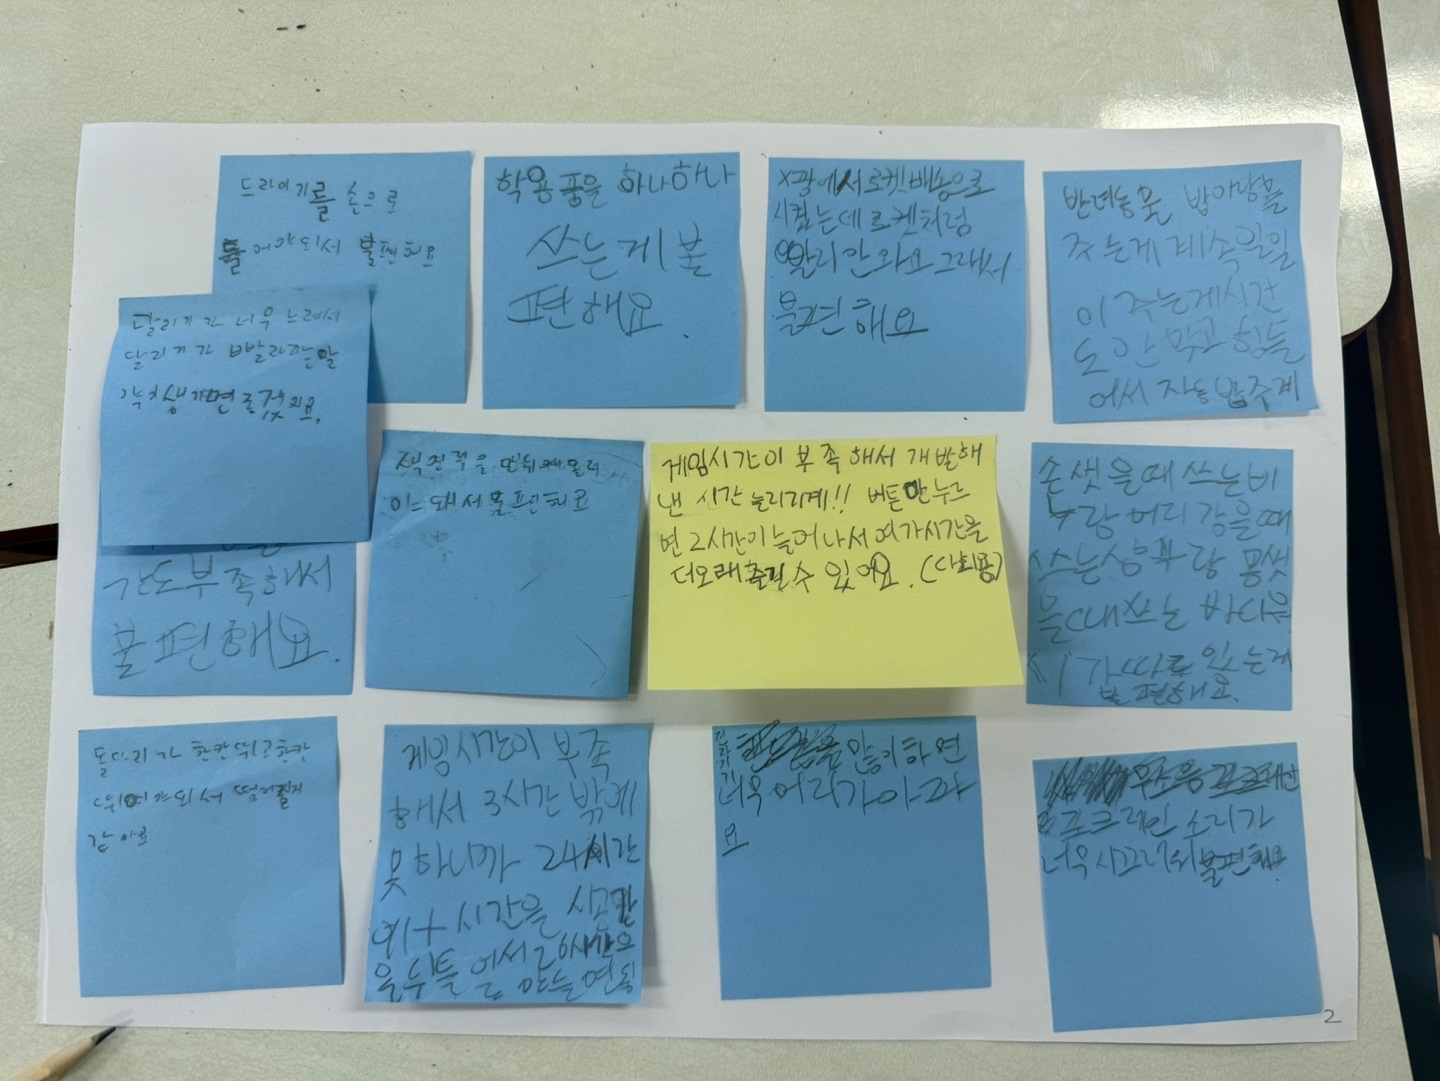 드라이기를 손으로
들어야되서 불편해요
학용품을 하나하나
쓰는게 불
편해요.
X팡에서 로켓배송으로
시켰는데 로켓처럼
빨리 안와요 그래서
불편해요
반려동물 밥이랑 물
주는게 계속 일일
이 주는게 시간
도 안 맞고 힘들
어서 자동 밥주게
달리기가 너무 느려서
달리기가 빨라지는 알
약이 생기면 좋겠어요.
간도 부족해서
불편해요.
게임시간이 부족해서 개발해
낸 시간 늘리기계!! 버튼만 누르
면 2시간이 늘어나서 여가시간을
더 오래 즐길 수 있어요. (다회용)
손 씻을때 쓰는 비
누랑 머리 감을때
쓰는 샴푸랑 몸 씻
을때 쓰는 바디워
시가 따로 있는게
불편해요.
돌다리가 한칸 뛰고 한칸
뛰어야되서 떨어질거
같아요
게임시간이 부족
해서 3시간 밖에
못하니까 24시간
에 + 시간을
서 26시간으
많이하면
너무 머리가 아파
요
포크레인 소리가
너무 시끄러워 불편해요.
2